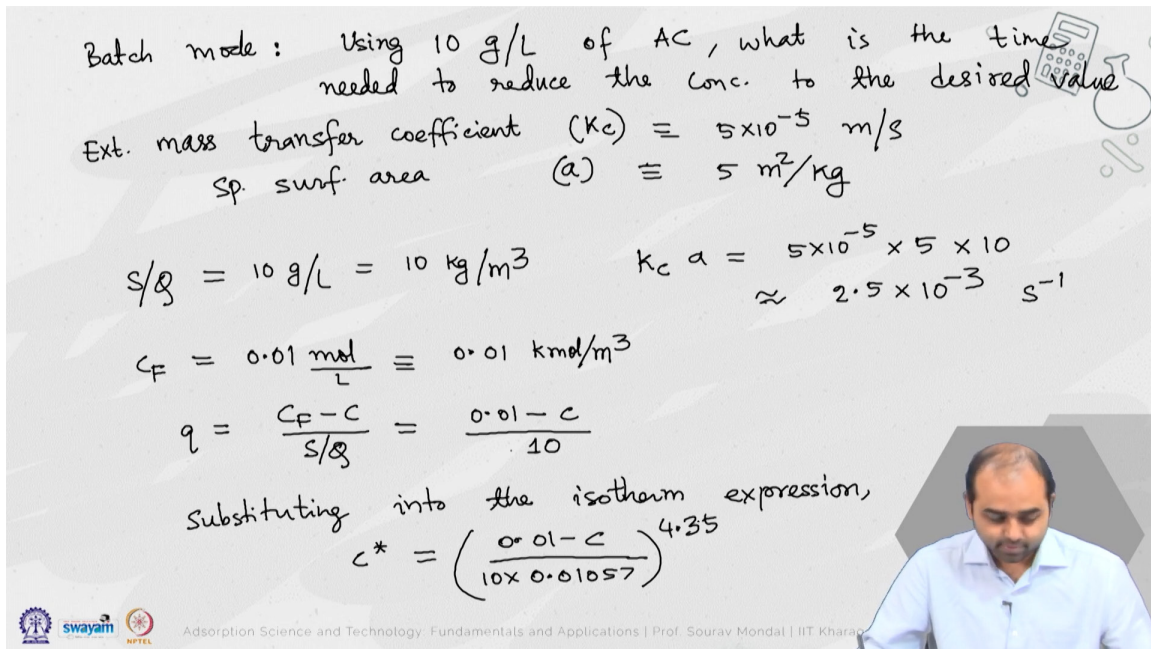 Batch mode : Using 10 g/L of AC, what is the time
needed to reduce the conc. to the desired value
Ext. mass transfer coefficient (Kc) ≡ 5×10⁻⁵ m/s
Sp. surf. area (a) ≡ 5 m²/kg
S/Q = 10 g/L = 10 kg/m³
kc a = 5×10⁻⁵ × 5 × 10
≈ 2.5 × 10⁻³ s⁻¹
CF = 0.01 mol/L ≡ 0.01 kmol/m³
q = (CF - C)/(S/Q) = (0.01 - C)/10
Substituting into the isotherm expression,
C* = ((0.01 - C)/(10× 0.01057))^4.35
swayam
NPTEL
Adsorption Science and Technology: Fundamentals and Applications | Prof. Sourav Mondal | IIT Kharag